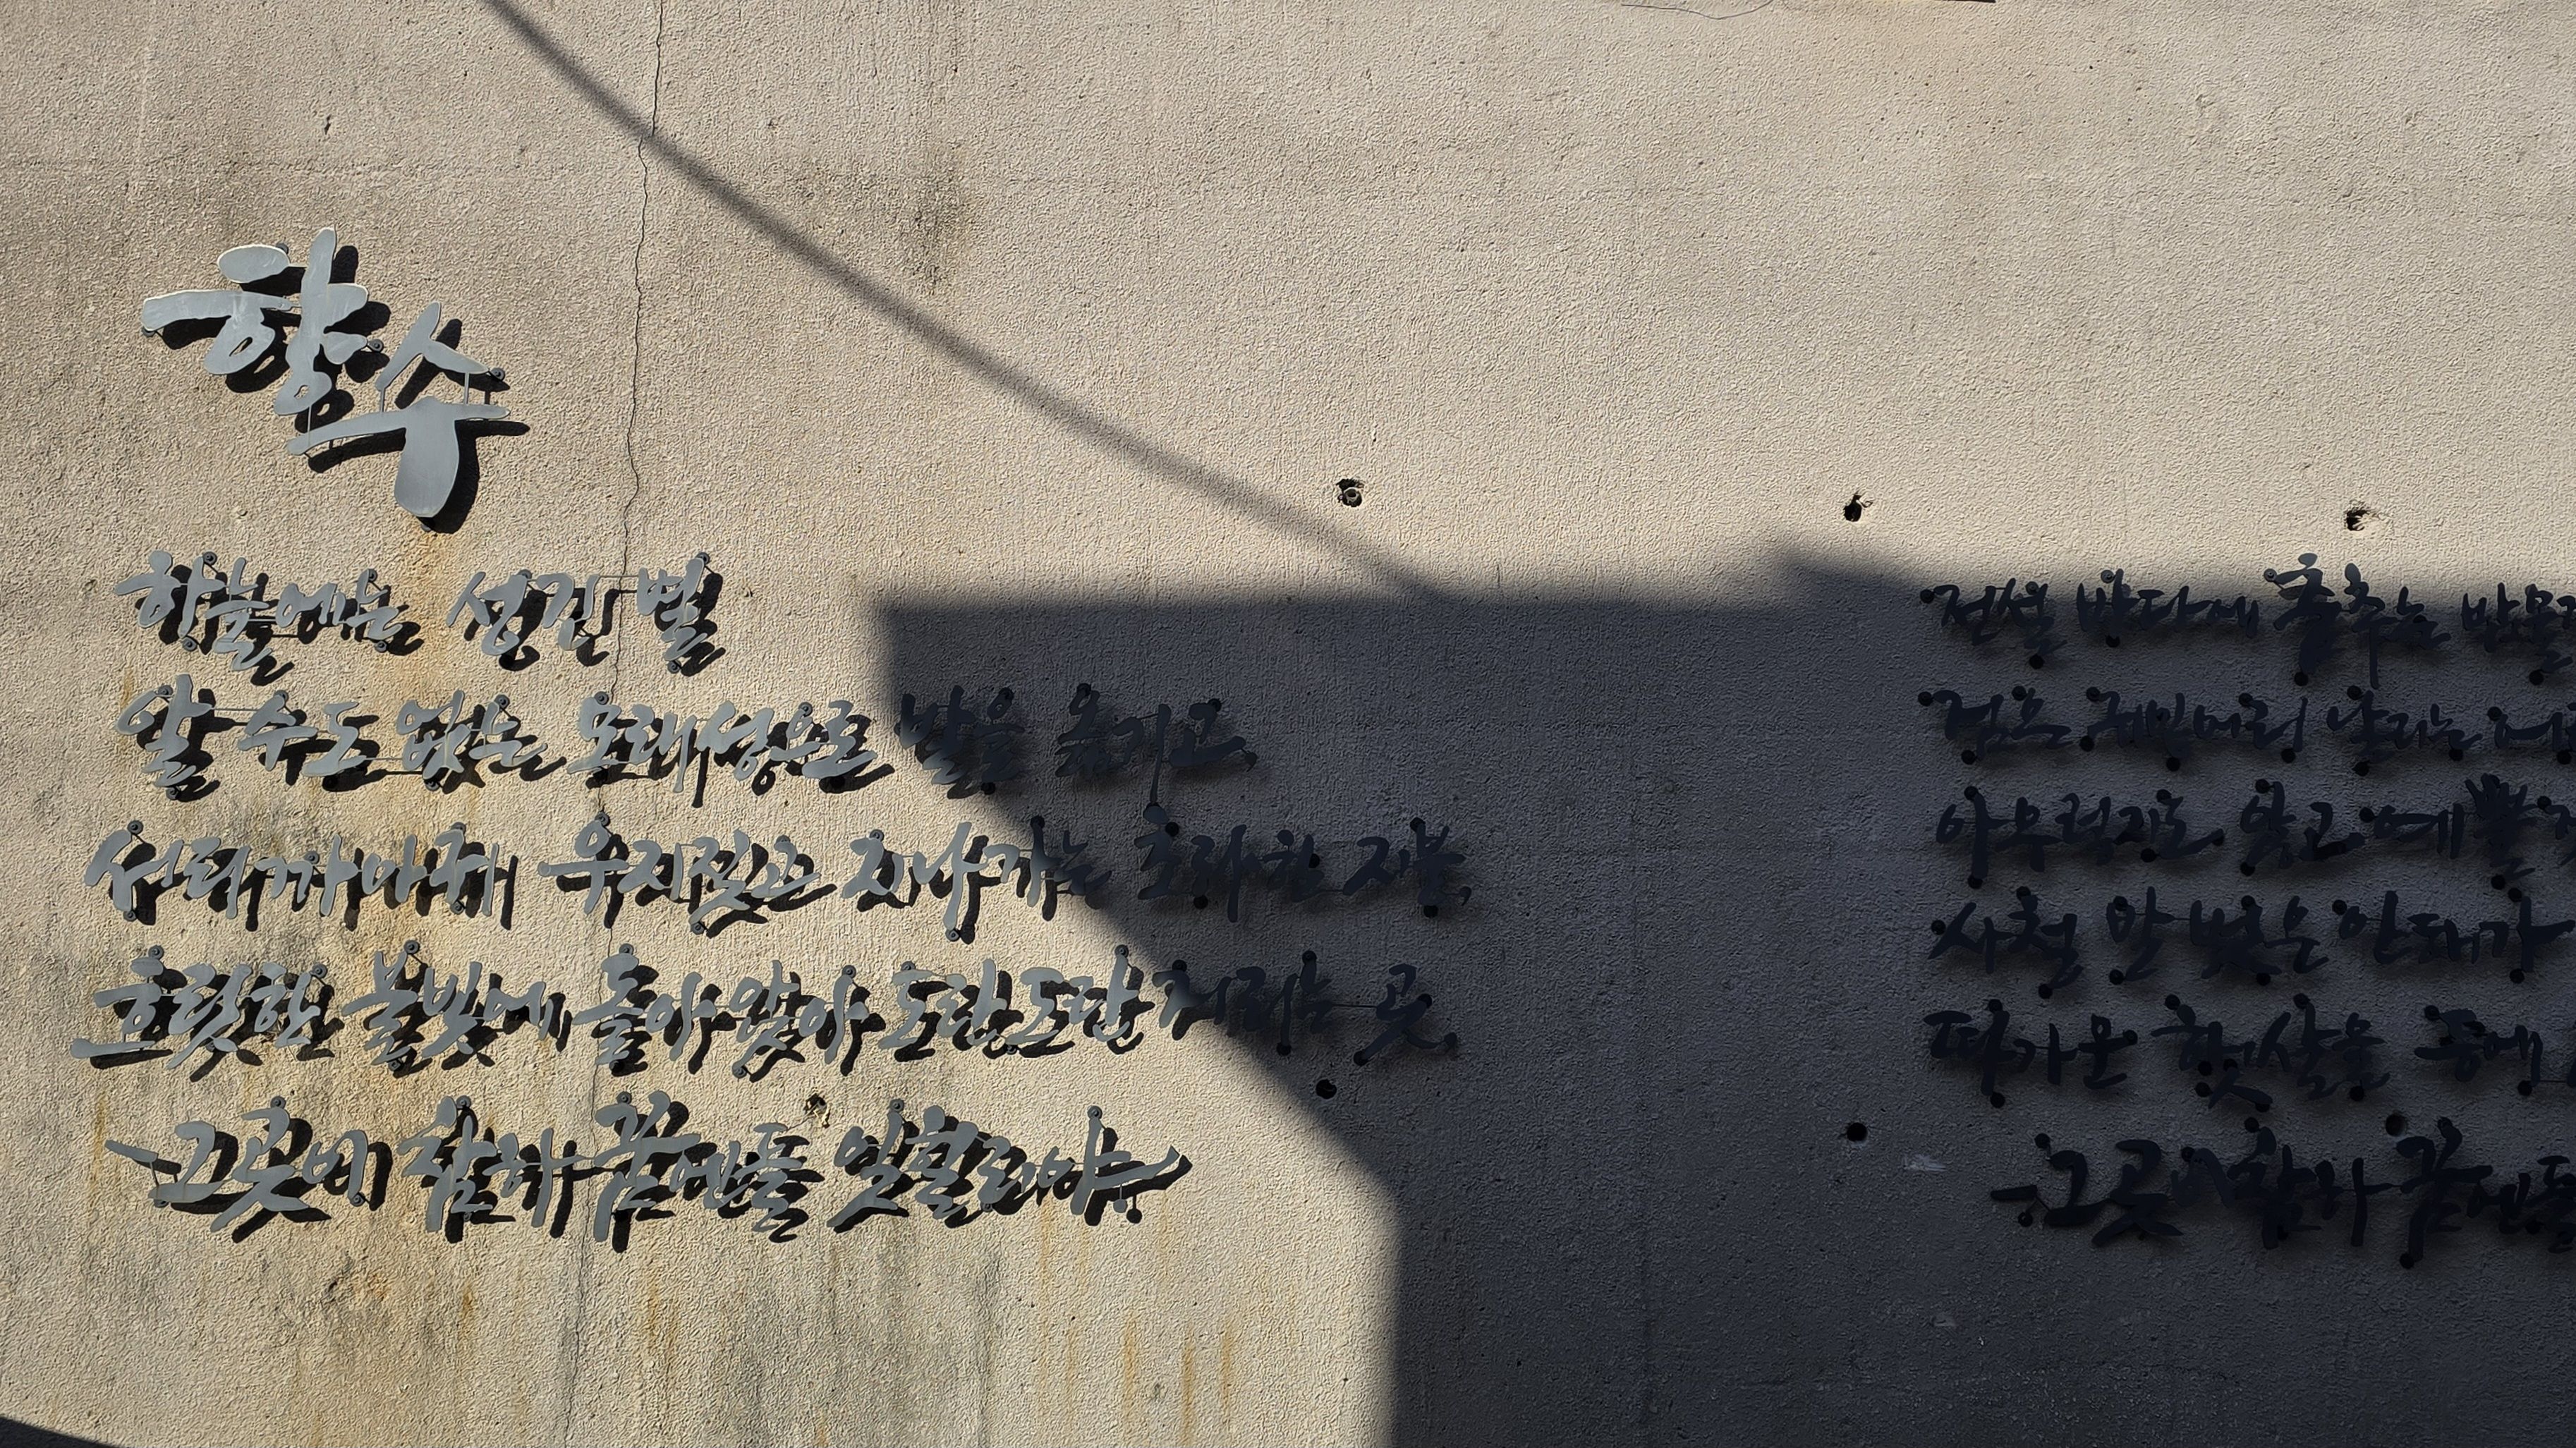 향수
하늘에는 성긴 별
알 수도 없는 모래성으로 발을 옮기고,
서리 까마귀 우지짖고 지나가는 초라한 지붕,
흐릿한 불빛에 돌아 앉아 도란도란 거리는 곳,
-그 곳이 참하 꿈엔들 잊힐리야
전설 바다에 춤추는 밤물
검은 귀밑머리 날리는 어
아무렇지도 않고 예쁠
사철 발 벗은 안해가
따가운 햇살을 등에
-그 곳이 참하 꿈엔들